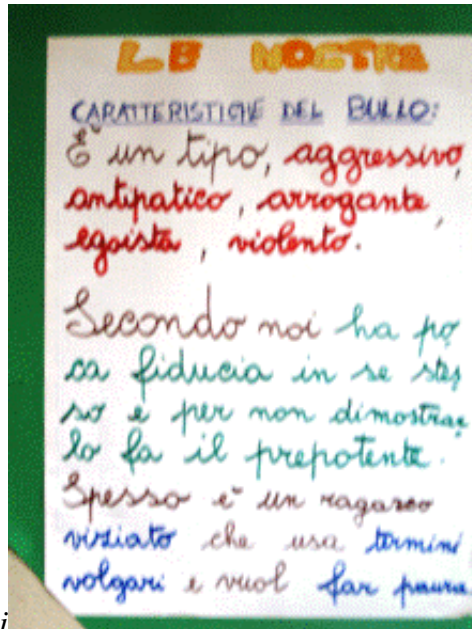 LA NOSTRA
CARATTERISTICHE DEL BULLO:
È un tipo, aggressivo,
antipatico, arrogante,
egoista, violento.
Secondo noi ha po
ca fiducia in se stes
so e per non dimostrar
lo fa il prepotente.
Spesso e' un ragazzo
viziato che usa termini
volgari e vuol far paura
i